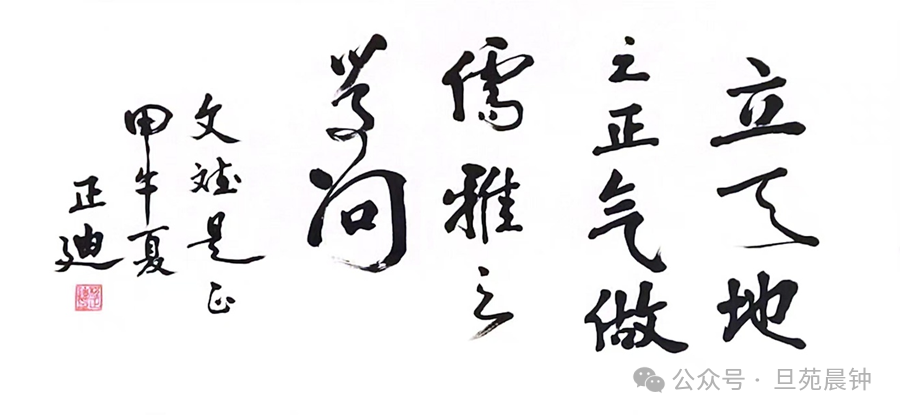 立天地
之正气做
儒雅之
学问
文斌是正
甲午夏
正迪
公众号 · 旦苑晨钟